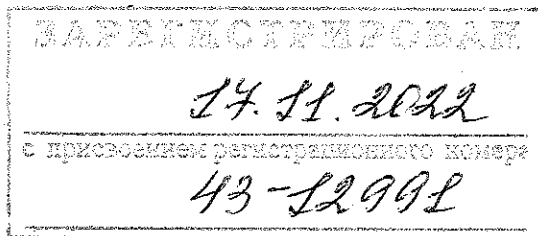 ЗАРЕГИСТРИРОВАН
17.11.2022
с присвоением регистрационного номера
43-12991